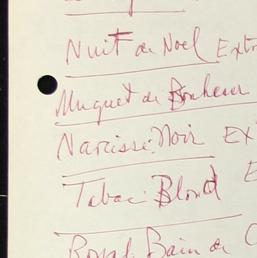 Nuit de Noel Extr
Muguet de Bonheur
Narcisse Noir EX
Tabac Blond E
Royal Bain de C